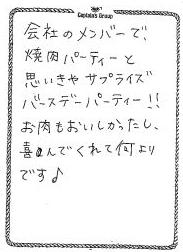 Captain's Group
会社のメンバーで、
焼肉パーティーと
思いきやサプライズ
バースデーパーティー!!
お肉もおいしかったし、
喜んでくれて何より
です♪